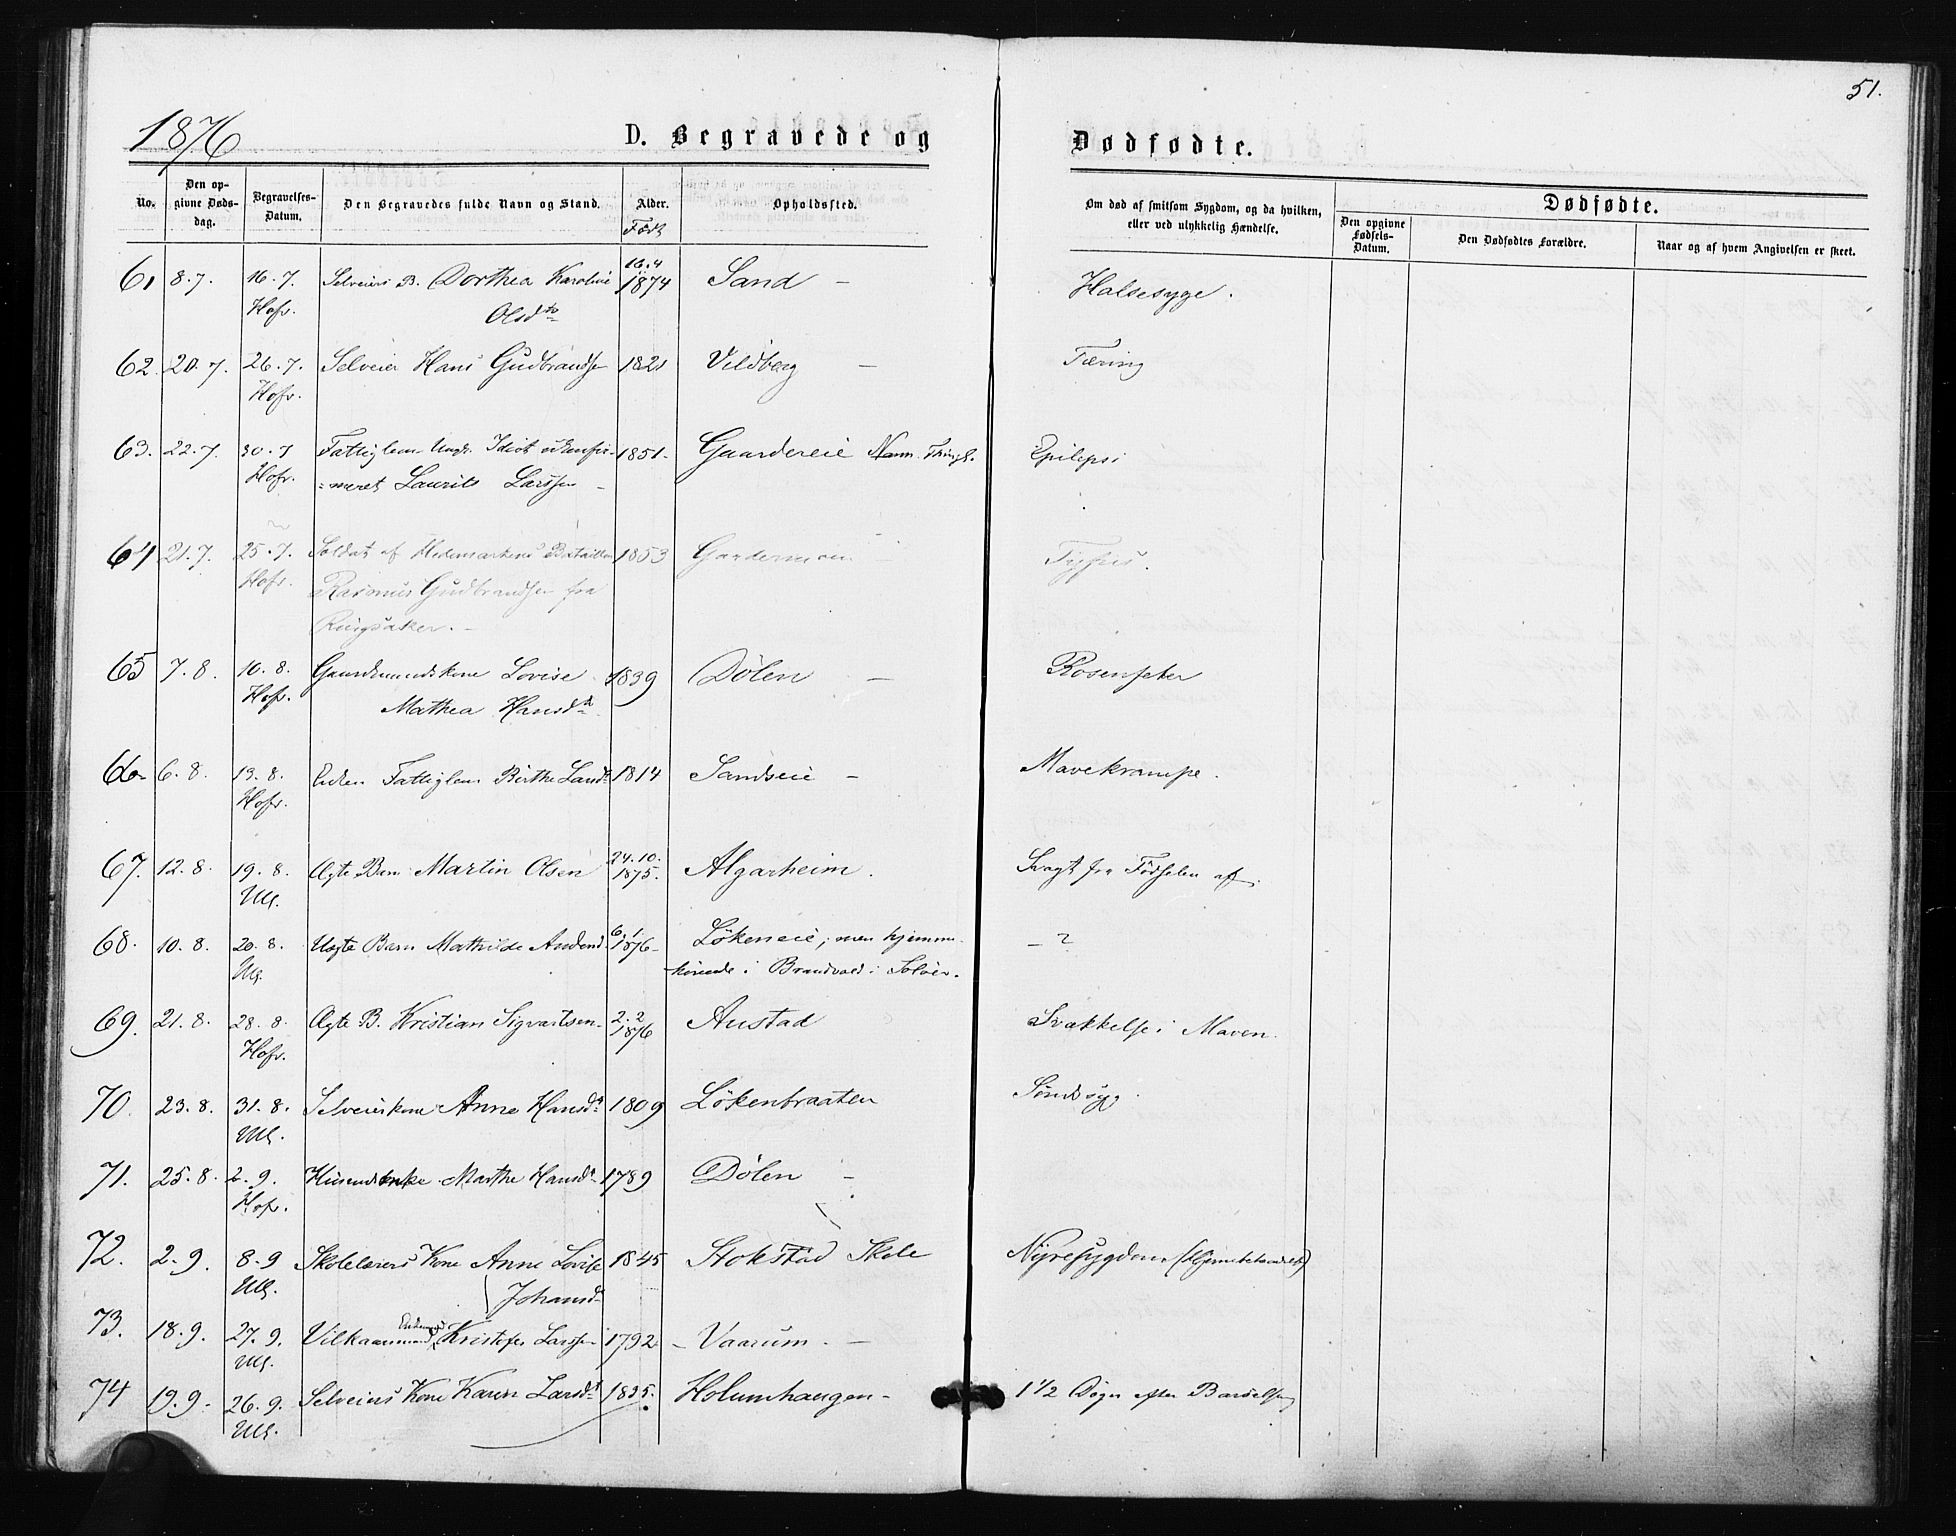 51.
1876
D. Begravede og
Dødfødte.
No.
Den op-
givne Døds-
dag.
Begravelses-
Datum.
Den Begravedes fulde Navn og Stand.
Alder.
Født
Opholdssted.
Om død af smitsom Sygdom, og da hvilken,
eller ved ulykkelig Hændelse.
Dødfødte.
Den opgivne
Fødsels-
Datum.
Den Dødfødtes Forældre.
Naar og af hvem Angivelsen er skeet.
61 8.7. 16.7. Selveiers B. Dorthea Karoline 16.4 1874 Sand - Halsesyge.
Hofr. Olsdtr
62. 20.7. 26.7. Selveier Hans Gudbrandsen 1821 Vildberg - Tæring
Hofr.
63. 22.7. 30.7 Fattiglem Ungk. Idiot ukonfir- 1851. Gaardereie Nann. Epilepsi
Hofr. =meret Laurits Larssen -
64 21.7. 25.7. Soldat af Hedemarkens Bataillon 1853 Gardermoen - Tyfus.
Hofr. Rasmus Gudbrandsen fra
Ringsaker. -
65 7.8. 10.8. Gaardmandskone Lovise 1839 Dølen - Rosenfeber
Hofr. Mathea Hansdtr
66 6.8. 13.8. Enken Fattiglem Birthe Larsd. 1814 Sandseie - Mavekrampe.
Hofr.
67. 12.8. 19.8. Ægte Barn Martin Olsen 24.10. 1875. Algarheim. Svagt fra Fødselen af.
Ull.
68. 10.8. 20.8. Uægte Barn Mathilde Andersd. 6.1 1876- Løkeneie, men hjemme- - ?
Ull. hørende i Brandvold i Solør.
69. 21.8. 28.8. Ægte B. Kristian Sigvartsen 2.2 1876 Austad Svækkelse i Maven.
Hofr.
70. 23.8. 31.8. Selveierkone Anne Hansdt. 1809 Løkenbraaten Sindssyg.
Ull.
71. 25.8. 2.9. Husmdsenke Marthe Hansdt. 1789 Dølen -
Hofr.
72. 2.9. 8.9 Skolelærers Kone Anne Lovise 1845 Stokstad Skole Nyresygdom
Ull. Johansd.
73. 18.9. 27.9. Vilkaarsmand Kristofer Larssen 1792 - Vaarum. -
Ull.
74 19.9. 26.9. Selveiers Kone Karen Larsdt. 1835. Holumhaugen - 1 1/2 Døgn efter Barselseng
Ull.